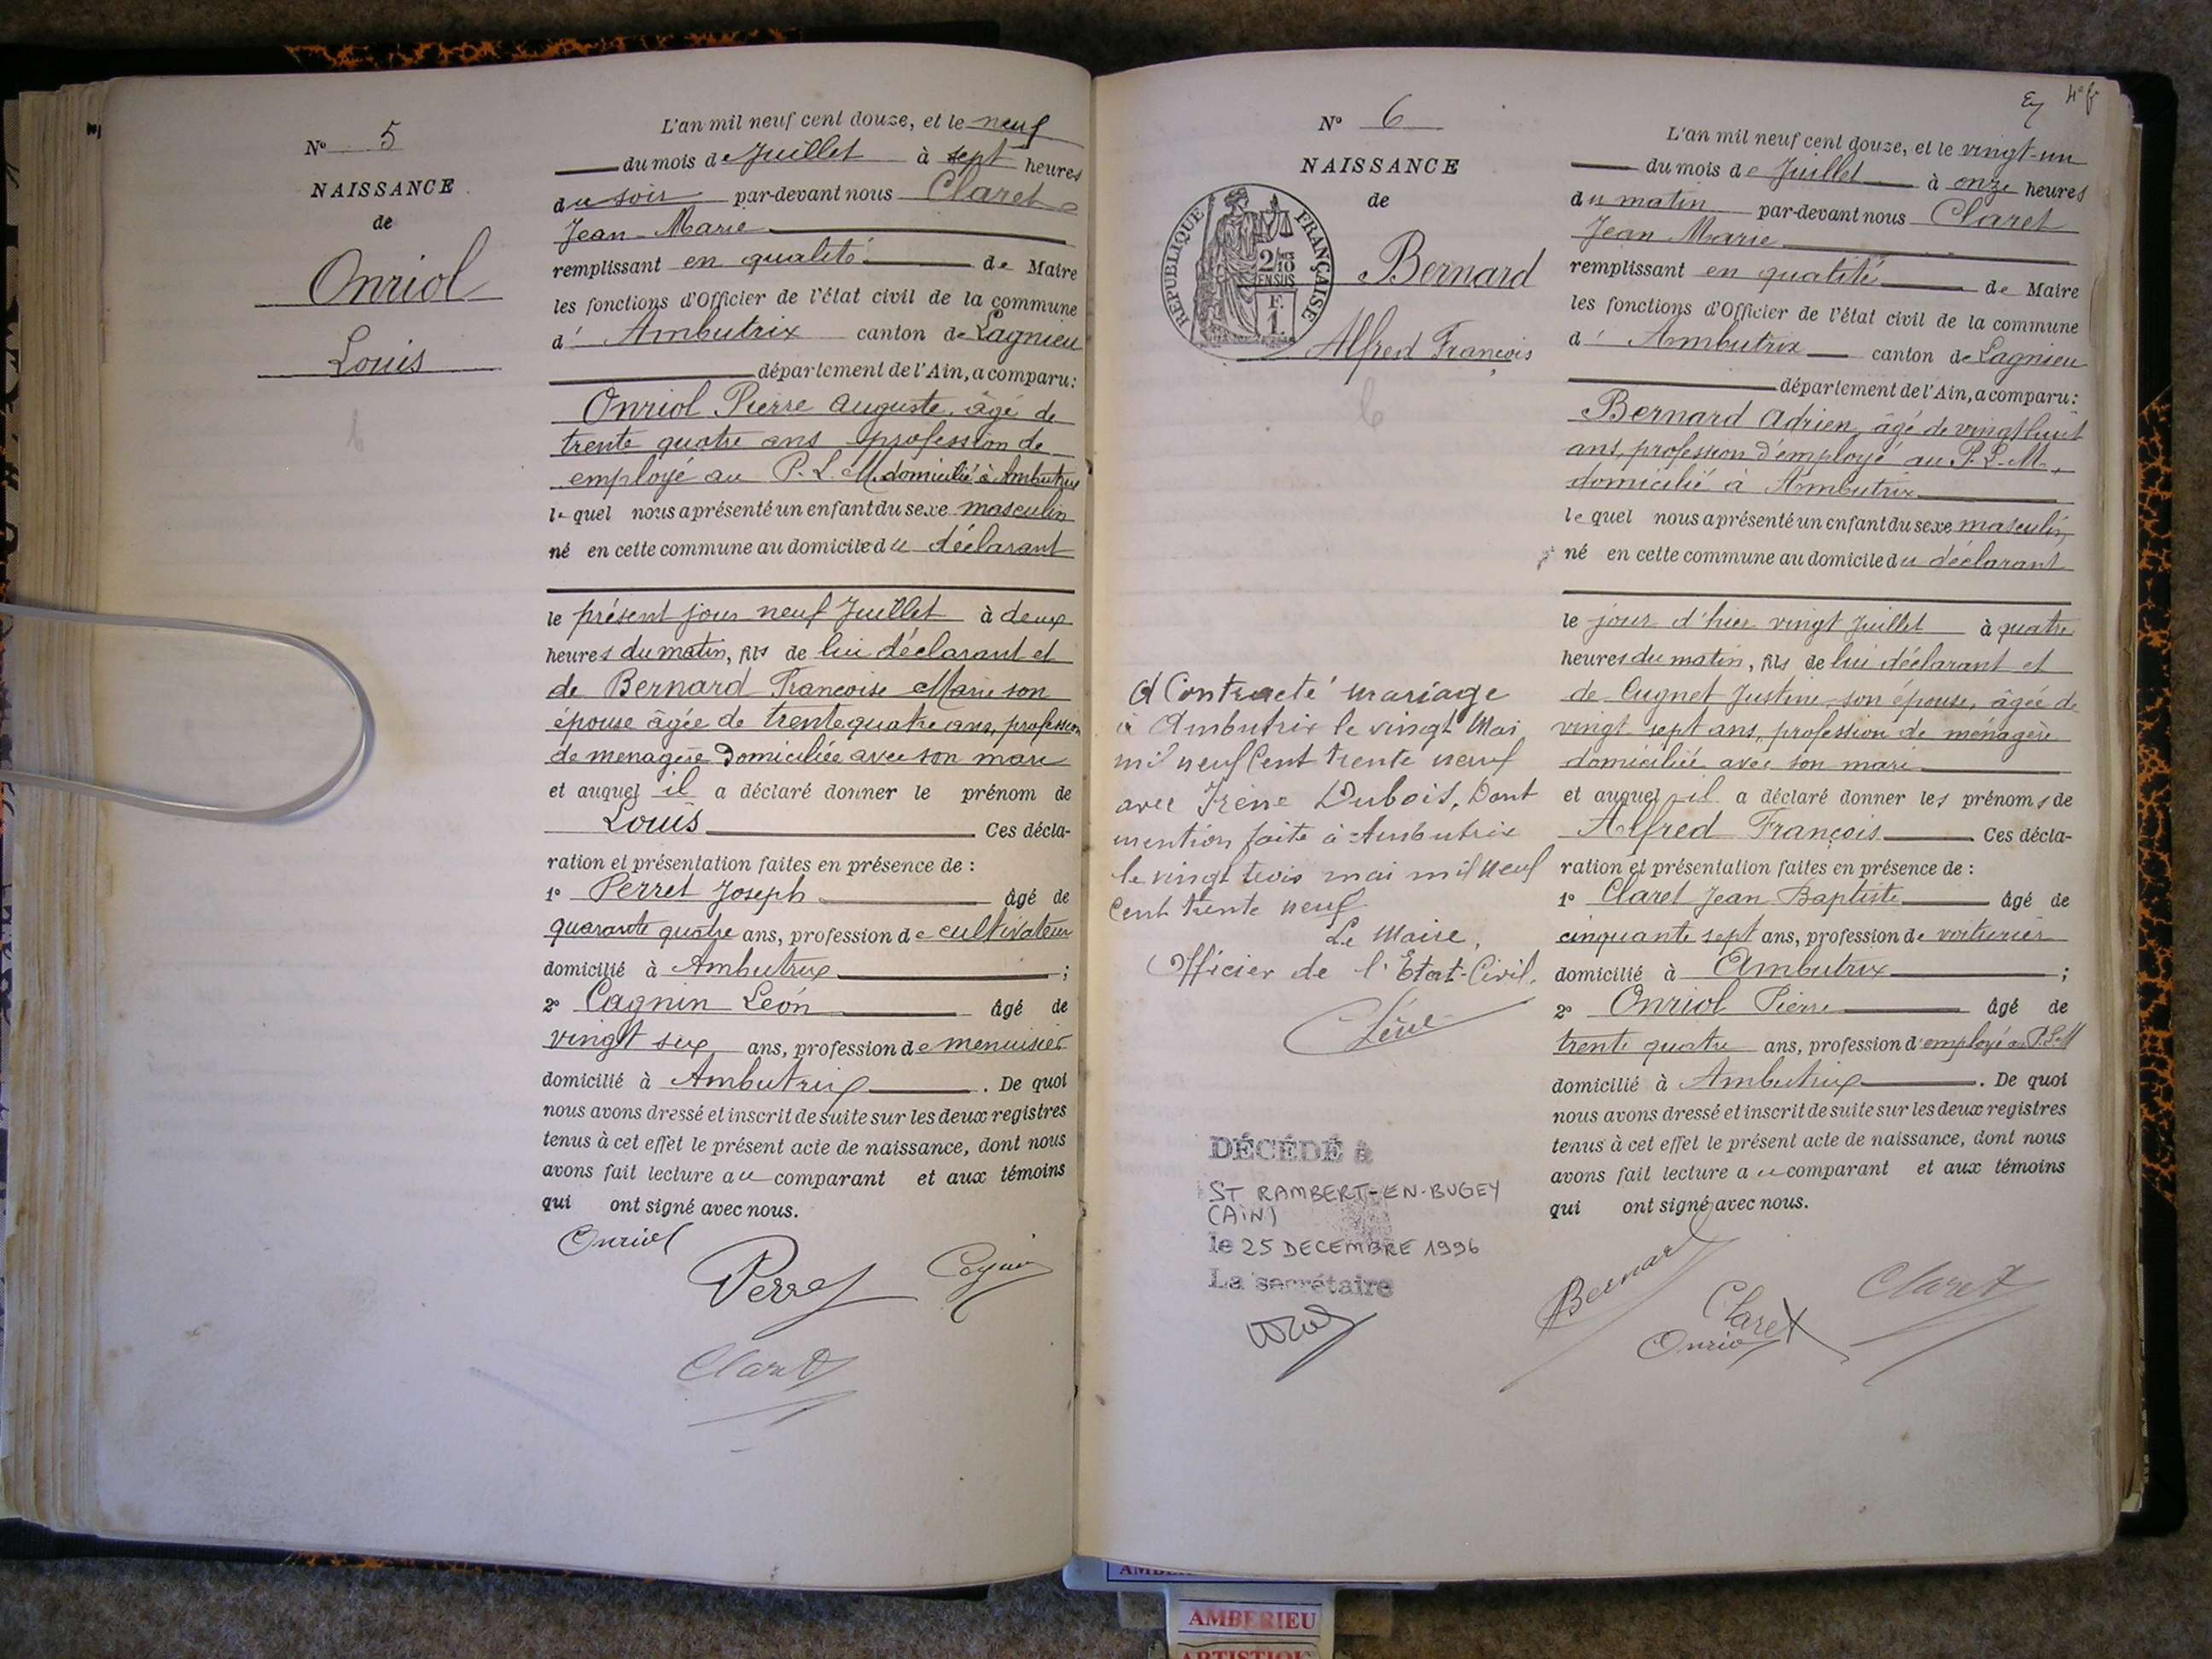 N° 5
NAISSANCE
de
Onriol
Louis
L'an mil neuf cent douze, et le neuf
du mois de Juillet à sept heures
du soir par-devant nous Claret
Jean-Marie
remplissant en qualité de Maire
les fonctions d'Officier de l'état civil de la commune
d' Ambutrix canton de Lagnieu
département de l'Ain, a comparu:
Onriol Pierre Auguste, âgé de
trente quatre ans profession de
employé au P.L.M. domicilié à Ambutrix
lequel nous a présenté un enfant du sexe masculin
né en cette commune au domicile du déclarant
le présent jour neuf Juillet à deux
heures du matin, fils de lui déclarant et
de Bernard Françoise Marie son
épouse âgée de trente quatre ans, profession
de menagère domiciliée avec son mari
et auquel il a déclaré donner le prénom de
Louis Ces décla-
ration et présentation faites en présence de :
1° Perret Joseph âgé de
quarante quatre ans, profession de cultivateur
domicilié à Ambutrix ;
2° Cagnin Léon âgé de
vingt six ans, profession de menuisier
domicilié à Ambutrix . De quoi
nous avons dressé et inscrit de suite sur les deux registres
tenus à cet effet le présent acte de naissance, dont nous
avons fait lecture au comparant et aux témoins
qui ont signé avec nous.
Onriol
Perret Cagnin
Claret
4e f
N° 6
NAISSANCE
de
REPUBLIQUE FRANÇAISE
2/10 EN SUS
F.
1.
Bernard
Alfred François
A Contracté mariage
à Ambutrix le vingt Mai
mil neuf Cent trente neuf
avec Irène Dubois, Dont
mention faite à Ambutrix
le vingt trois mai mil neuf
Cent trente neuf
Le Maire,
Officier de l'Etat-Civil.
DÉCÉDÉ à
ST RAMBERT-EN-BUGEY
(AIN)
le 25 DECEMBRE 1996
La secrétaire
L'an mil neuf cent douze, et le vingt-un
du mois de Juillet à onze heures
du matin par-devant nous Claret
Jean Marie
remplissant en qualité de Maire
les fonctions d'Officier de l'état civil de la commune
d' Ambutrix canton de Lagnieu
département de l'Ain, a comparu:
Bernard Adrien, âgé de vingt huit
ans, profession d'employé au P.L.M.,
domicilié à Ambutrix
lequel nous a présenté un enfant du sexe masculin
né en cette commune au domicile du déclarant
le jour d'hier vingt Juillet à quatre
heures du matin, fils de lui déclarant et
de Cugnet Justine son épouse, âgée de
vingt sept ans, profession de ménagère
domiciliée avec son mari
et auquel il a déclaré donner les prénoms de
Alfred François Ces décla-
ration et présentation faites en présence de :
1° Claret Jean Baptiste âgé de
cinquante sept ans, profession de voiturier
domicilié à Ambutrix ;
2° Onriol Pierre âgé de
trente quatre ans, profession d'employé au P.L.M
domicilié à Ambutrix . De quoi
nous avons dressé et inscrit de suite sur les deux registres
tenus à cet effet le présent acte de naissance, dont nous
avons fait lecture au comparant et aux témoins
qui ont signé avec nous.
Bernard
Claret
Claret
Onriol
AMBERIEU